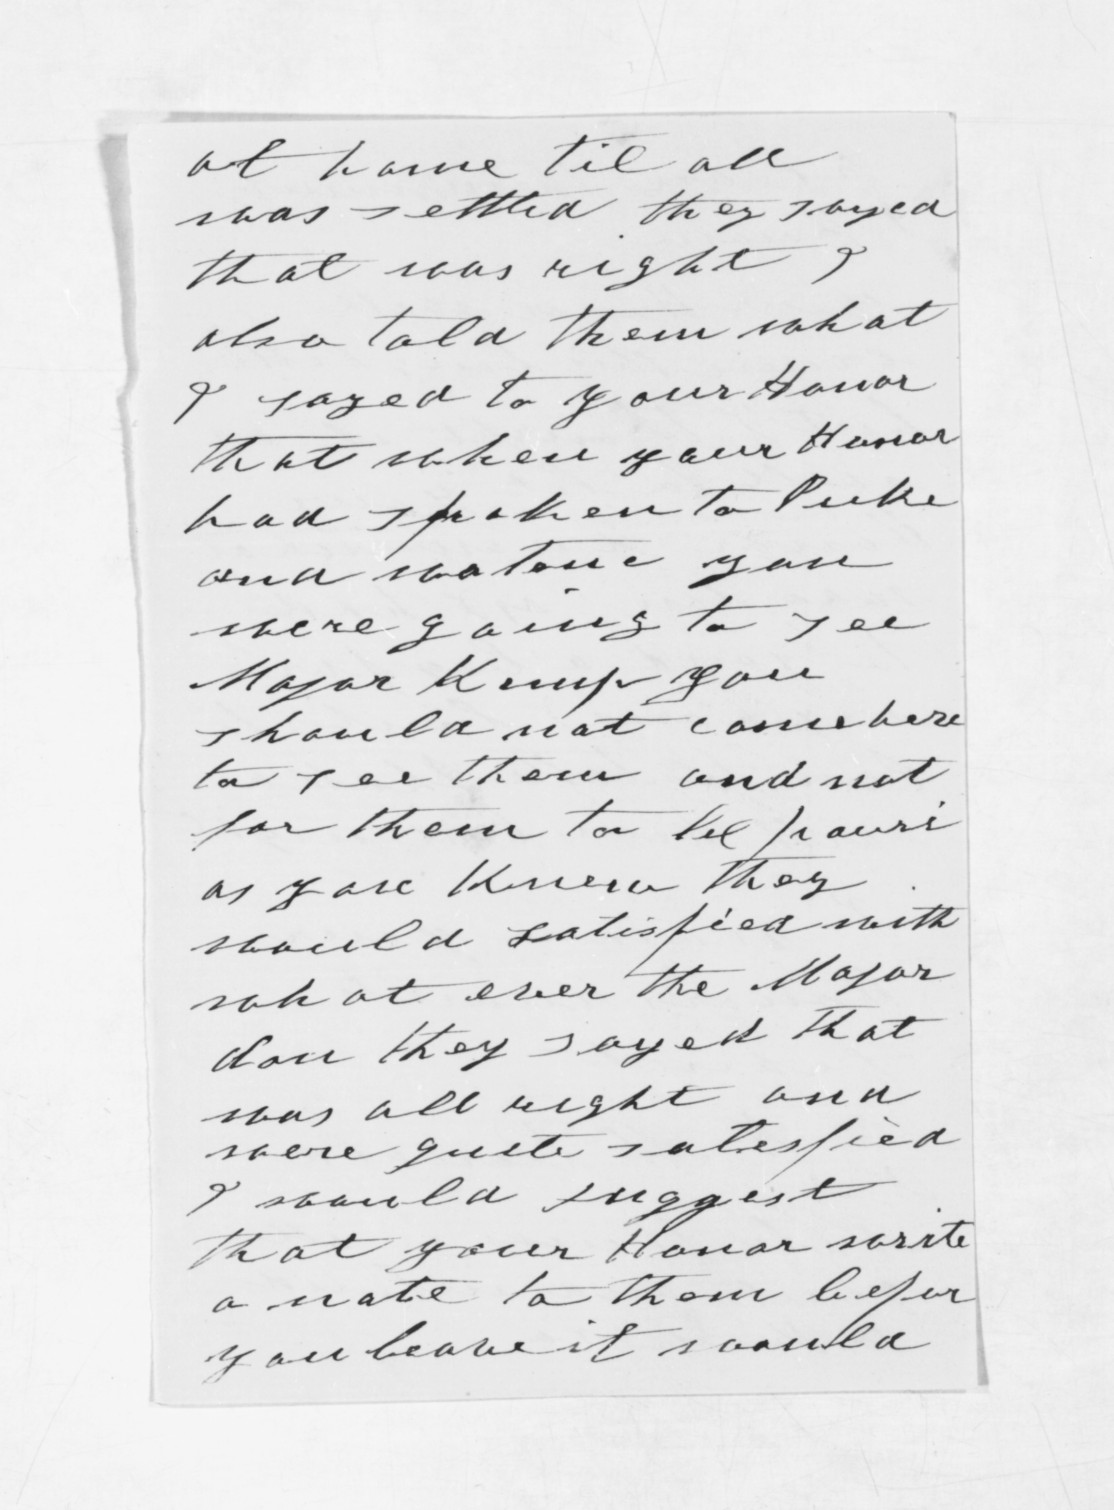 at home til all
was settled they sayed
that was right I
also told them what
I sayed to your Honor
that when your Honor
had spoken to Puke
and watene you
were going to see
Major Kemp you
should not come here
to see them and not
for them to be pouri
as you Knew they
would satisfied with
what ever the Major
don they sayed that
was all right and
were quite satesfied
I would suggest
that your Honor write
a note to them befor
you leave it would